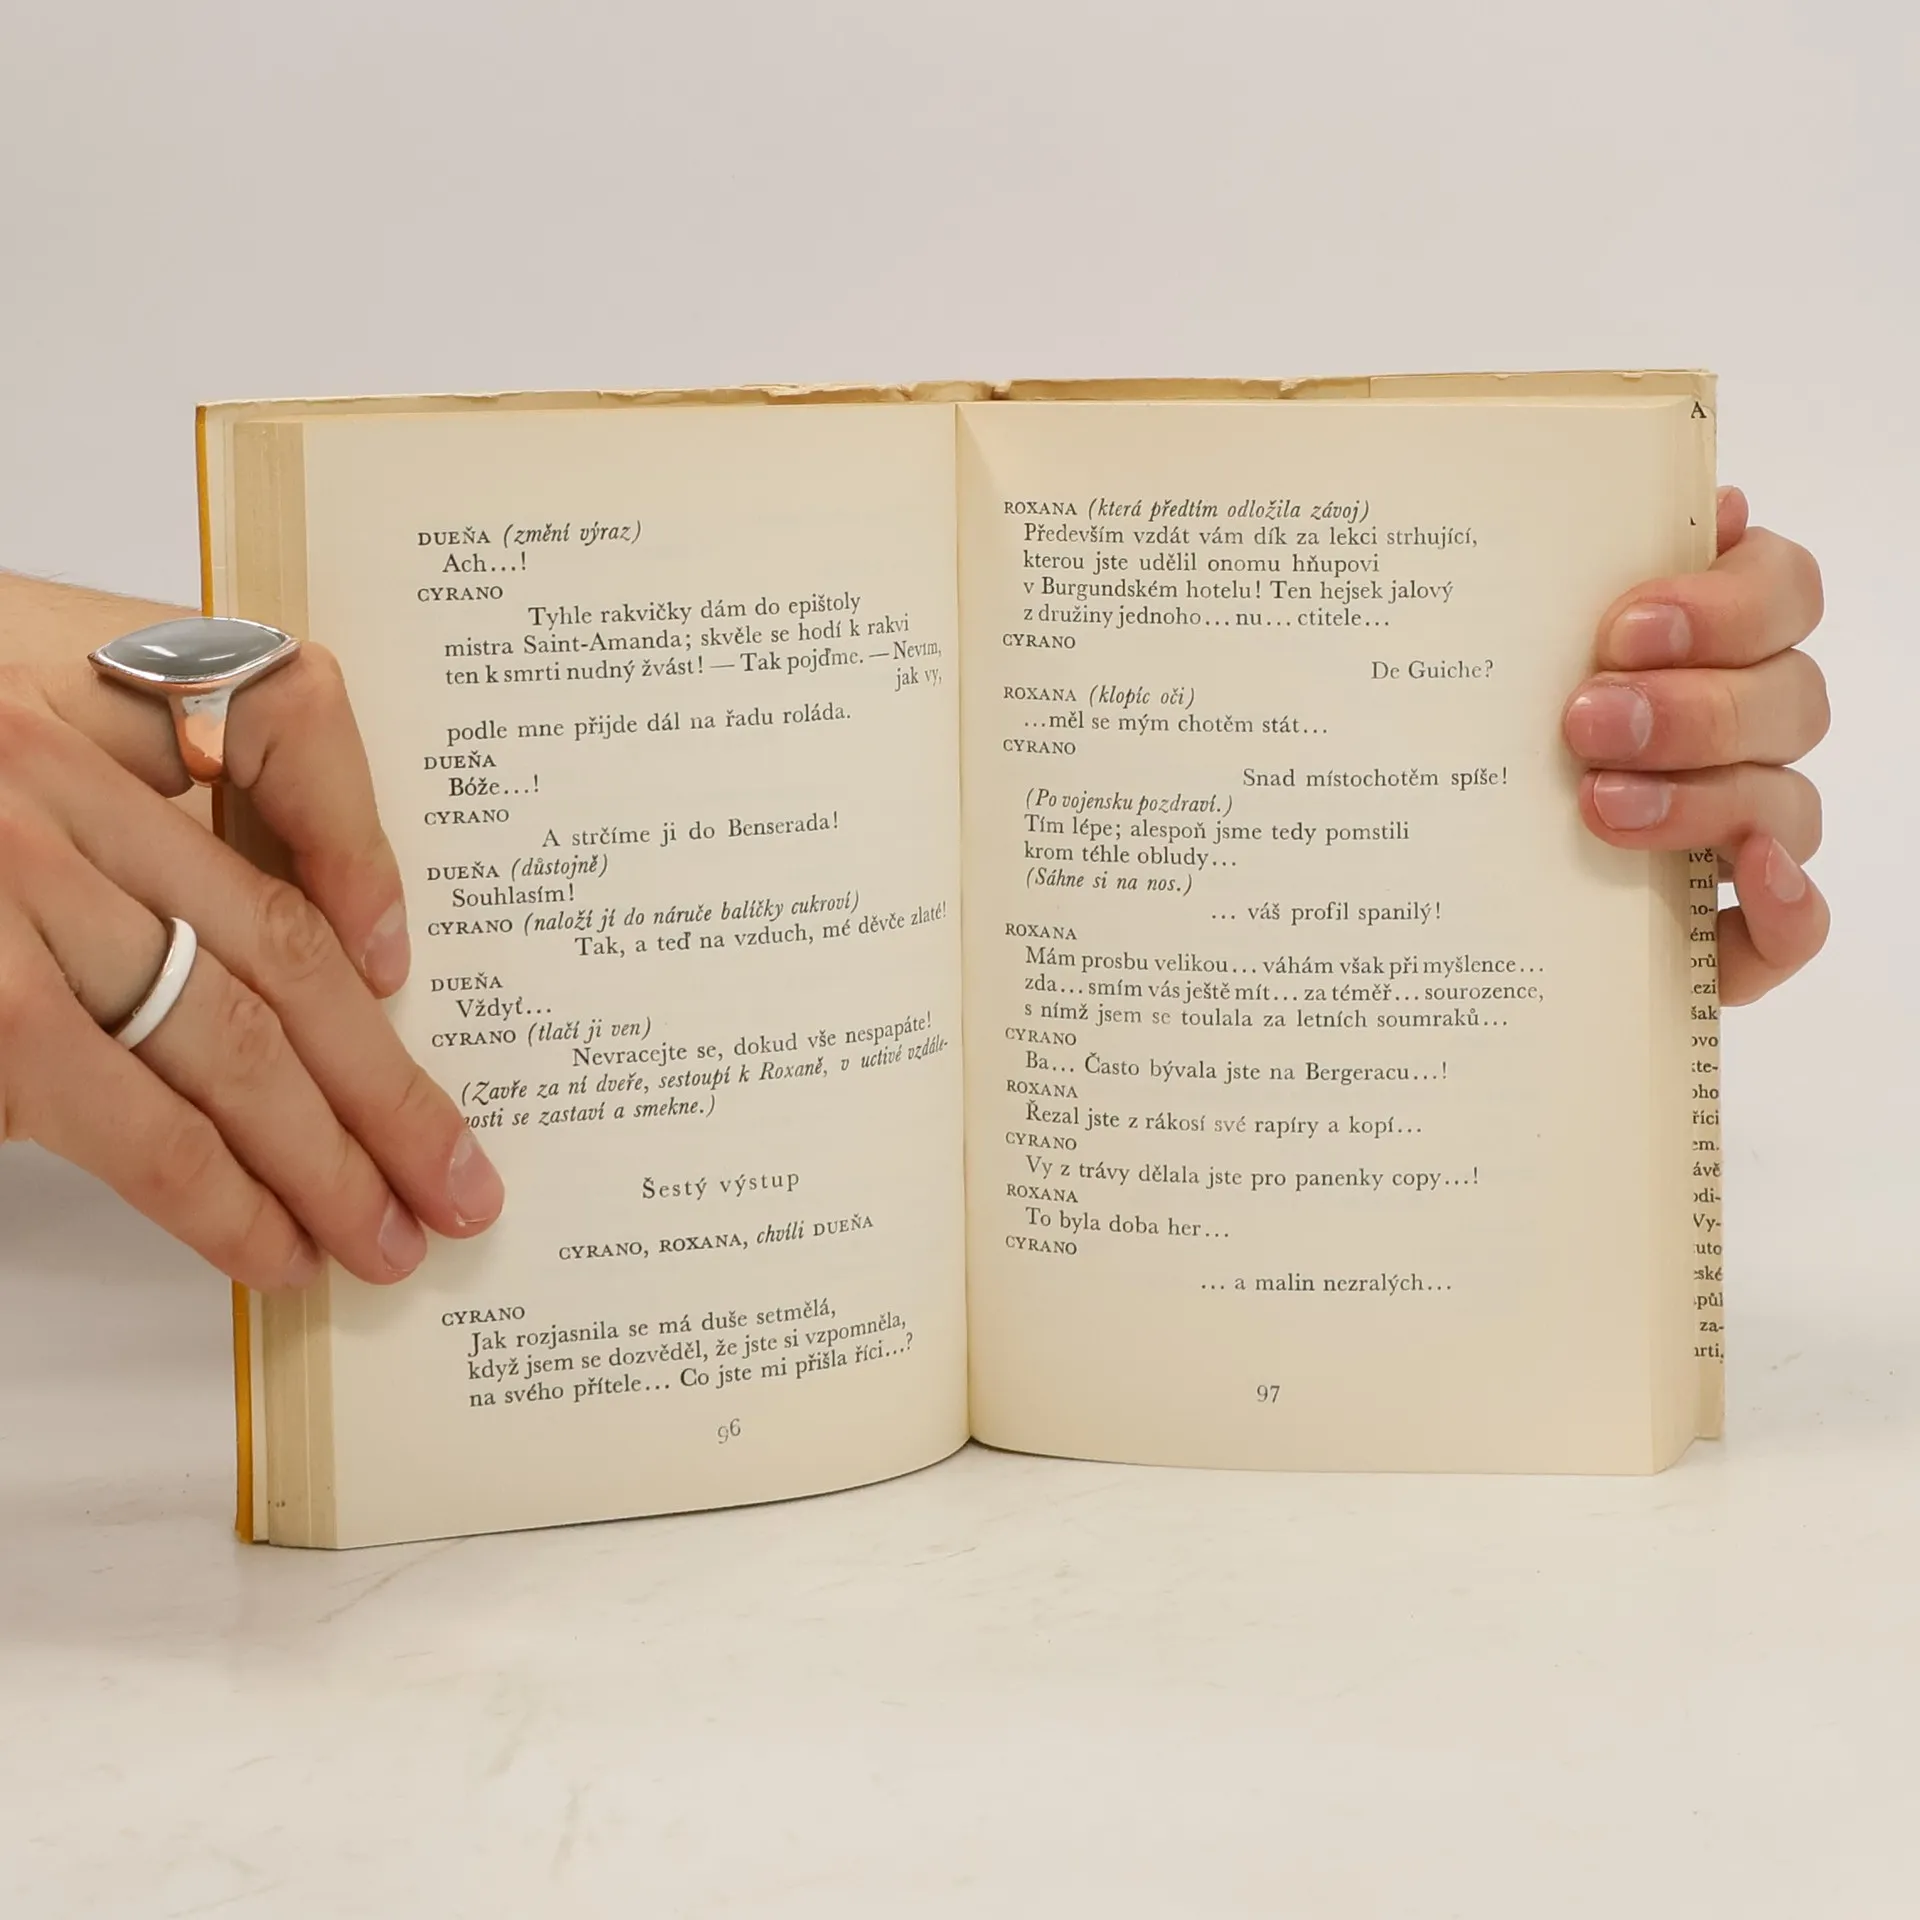 DUEŇA (změní výraz)
Ach...!
CYRANO
Tyhle rakvičky dám do epištoly
mistra Saint-Amanda; skvěle se hodí k rakvi
ten k smrti nudný žvást! — Tak pojďme. — Nevím,
jak vy,
podle mne přijde dál na řadu roláda.
DUEŇA
Bóže...!
CYRANO
A strčíme ji do Benserada!
DUEŇA (důstojně)
Souhlasím!
CYRANO (naloží jí do náruče balíčky cukroví)
Tak, a teď na vzduch, mé děvče zlaté!
DUEŇA
Vždyť...
CYRANO (tlačí ji ven)
Nevracejte se, dokud vše nespapáte!
(Zavře za ní dveře, sestoupí k Roxaně, v uctivé vzdále-
nosti se zastaví a smekne.)
Šestý výstup
CYRANO, ROXANA, chvíli DUEŇA
CYRANO
Jak rozjasnila se má duše setmělá,
když jsem se dozvěděl, že jste si vzpomněla,
na svého přítele... Co jste mi přišla říci...?
96
ROXANA (která předtím odložila závoj)
Především vzdát vám dík za lekci strhující,
kterou jste udělil onomu hňupovi
v Burgundském hotelu! Ten hejsek jalový
z družiny jednoho... nu... ctitele...
CYRANO
De Guiche?
ROXANA (klopíc oči)
...měl se mým chotěm stát...
CYRANO
Snad místochotěm spíše!
(Po vojensku pozdraví.)
Tím lépe; alespoň jsme tedy pomstili
krom téhle obludy...
(Sáhne si na nos.)
... váš profil spanilý!
ROXANA
Mám prosbu velikou... váhám však při myšlence...
zda... smím vás ještě mít... za téměř... sourozence,
s nímž jsem se toulala za letních soumraků...
CYRANO
Ba... Často bývala jste na Bergeracu...!
ROXANA
Řezal jste z rákosí své rapíry a kopí...
CYRANO
Vy z trávy dělala jste pro panenky copy...!
ROXANA
To byla doba her...
CYRANO
... a malin nezralých...
97